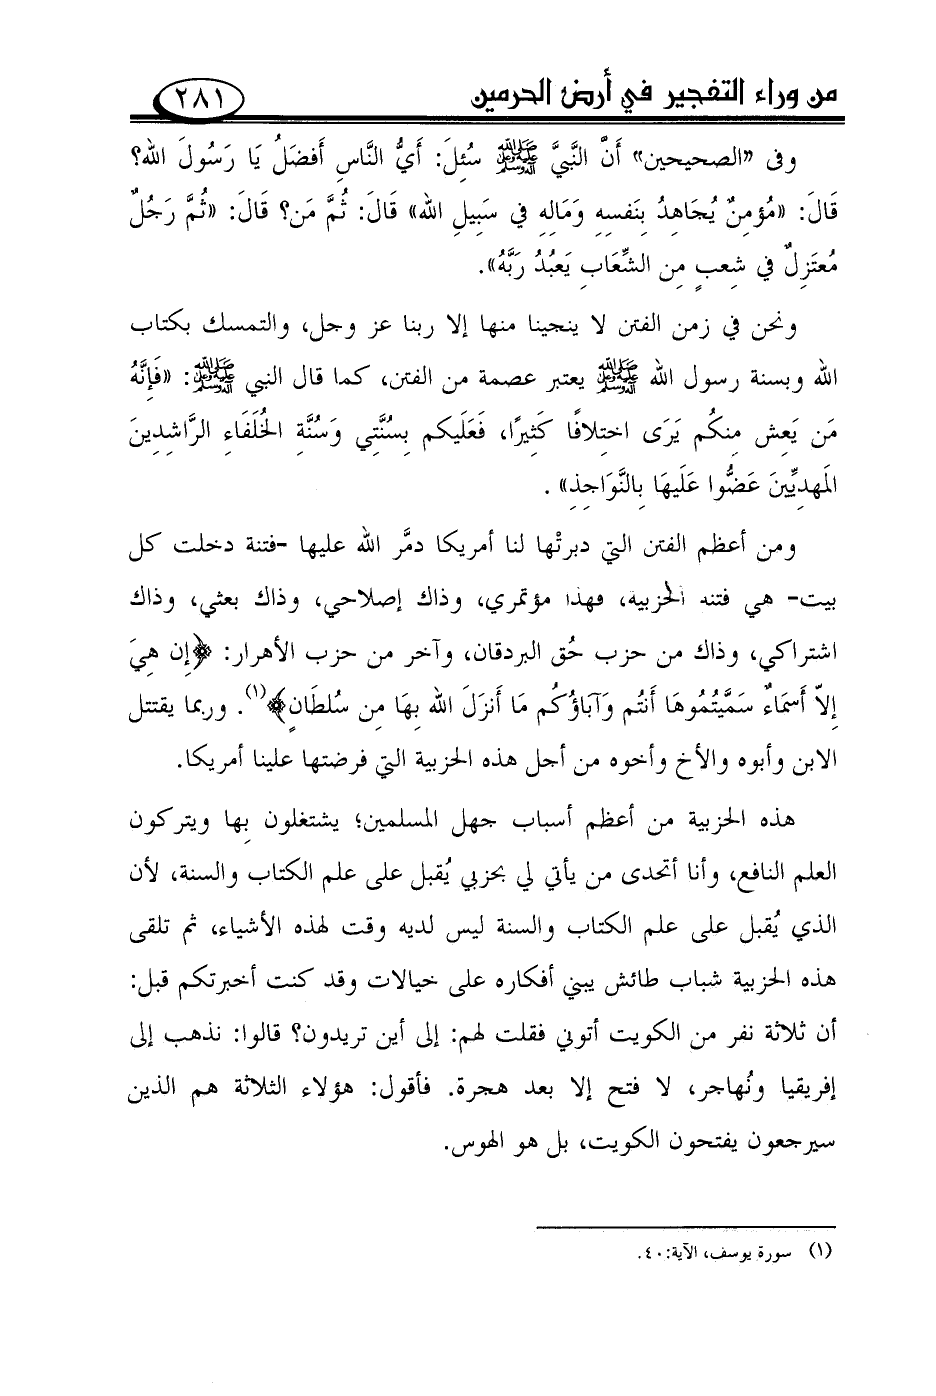 من وراء التفجير في أرض الحرمين ٢٨١
وفى «الصحيحين» أَنَّ النَّبيَّ ﷺ سُئِلَ: أَيُّ النَّاسِ أَفضَلُ يَا رَسُولَ الله؟
قَالَ: «مُؤمِنٌ يُجَاهِدُ بِنَفسِهِ وَمَالِهِ فِي سَبِيلِ الله» قَالَ: ثُمَّ مَن؟ قَالَ: «ثُمَّ رَجُلٌ
مُعتَزِلٌ فِي شِعبٍ مِن الشِّعَابِ يَعبُدُ رَبَّهُ».
ونحن في زمن الفتن لا ينجينا منها إلا ربنا عز وجل، والتمسك بكتاب
الله وبسنة رسول الله ﷺ يعتبر عصمة من الفتن، كما قال النبي ﷺ: «فَإِنَّهُ
مَن يَعِش مِنكُم يَرَى اختِلافًا كَثِيرًا، فَعَلَيكُم بِسُنَّتِي وَسُنَّةِ الخُلَفَاءِ الرَّاشِدِينَ
المَهدِيِّينَ عَضُّوا عَلَيهَا بِالنَّوَاجِذِ» .
ومن أعظم الفتن التي دبرتْها لنا أمريكا دمَّر الله عليها -فتنة دخلت كل
بيت- هي فتنه الحزبية، فهذا مؤتمري، وذاك إصلاحي، وذاك بعثي، وذاك
اشتراكي، وذاك من حزب حُق البردقان، وآخر من حزب الأهرار: ﴿إِن هِيَ
إِلاّ أَسمَاءٌ سَمَّيتُمُوهَا أَنتُم وَآبَاؤُكُم مَا أَنزَلَ الله بِهَا مِن سُلطَانٍ﴾(١). وربما يقتتل
الابن وأبوه والأخ وأخوه من أجل هذه الحزبية التي فرضتها علينا أمريكا.
هذه الحزبية من أعظم أسباب جهل المسلمين؛ يشتغلون بِها ويتركون
العلم النافع، وأنا أتحدى من يأتي لي بحزبي يُقبل على علم الكتاب والسنة، لأن
الذي يُقبل على علم الكتاب والسنة ليس لديه وقت لهذه الأشياء، ثم تلقى
هذه الحزبية شباب طائش يبني أفكاره على خيالات وقد كنت أخبرتكم قبل:
أن ثلاثة نفر من الكويت أتوني فقلت لهم: إلى أين تريدون؟ قالوا: نذهب إلى
إفريقيا ونُهاجر، لا فتح إلا بعد هجرة. فأقول: هؤلاء الثلاثة هم الذين
سيرجعون يفتحون الكويت، بل هو الهوس.
(١) سورة يوسف، الآية:٤٠.